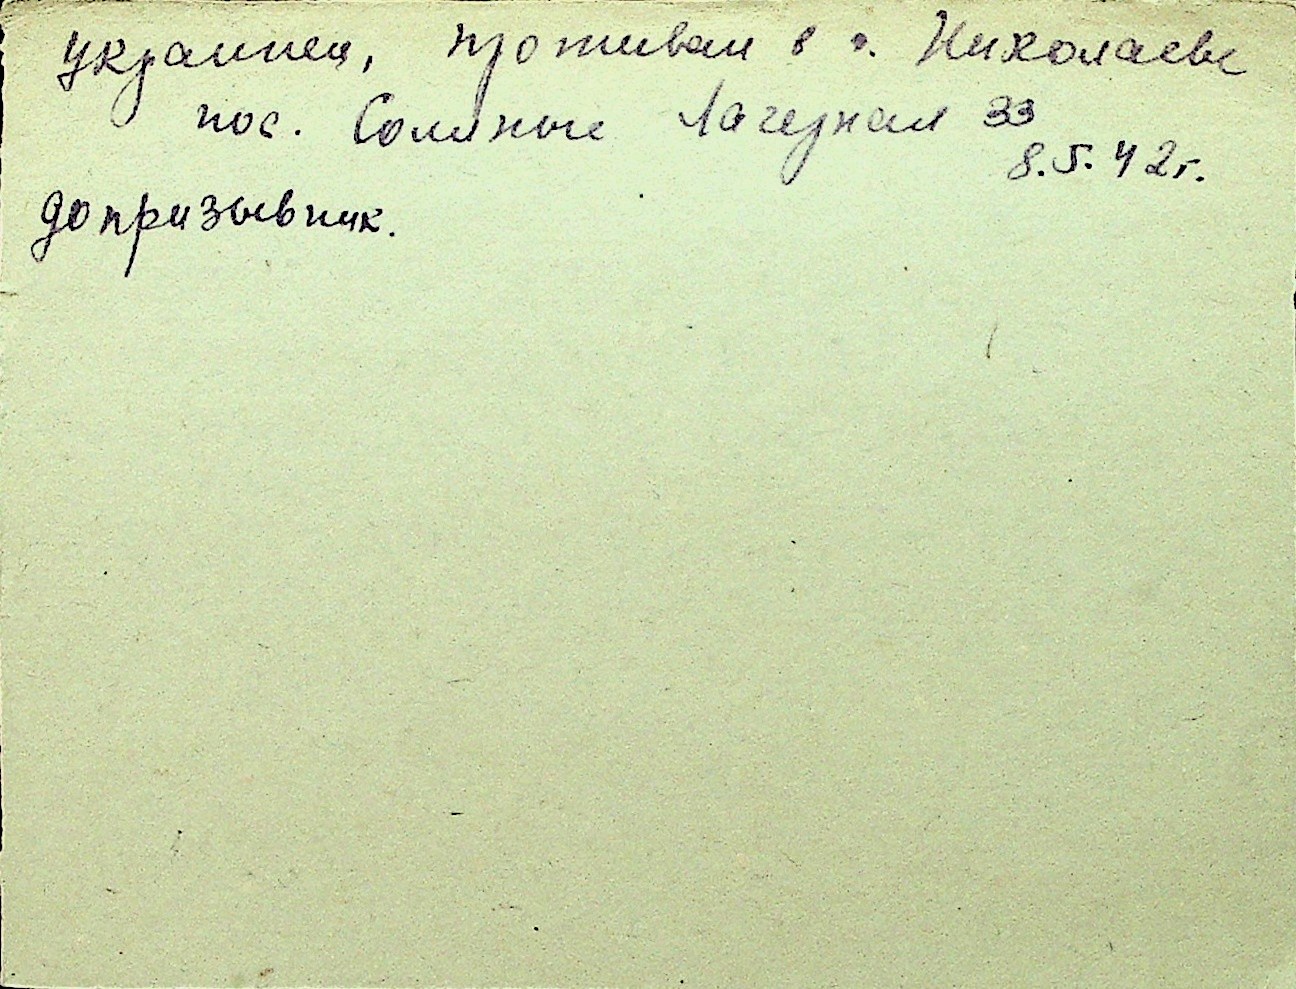 украинец, проживал в г. Николаеве
пос. Соляные Лагерная 33
8.5.42г.
допризывник.